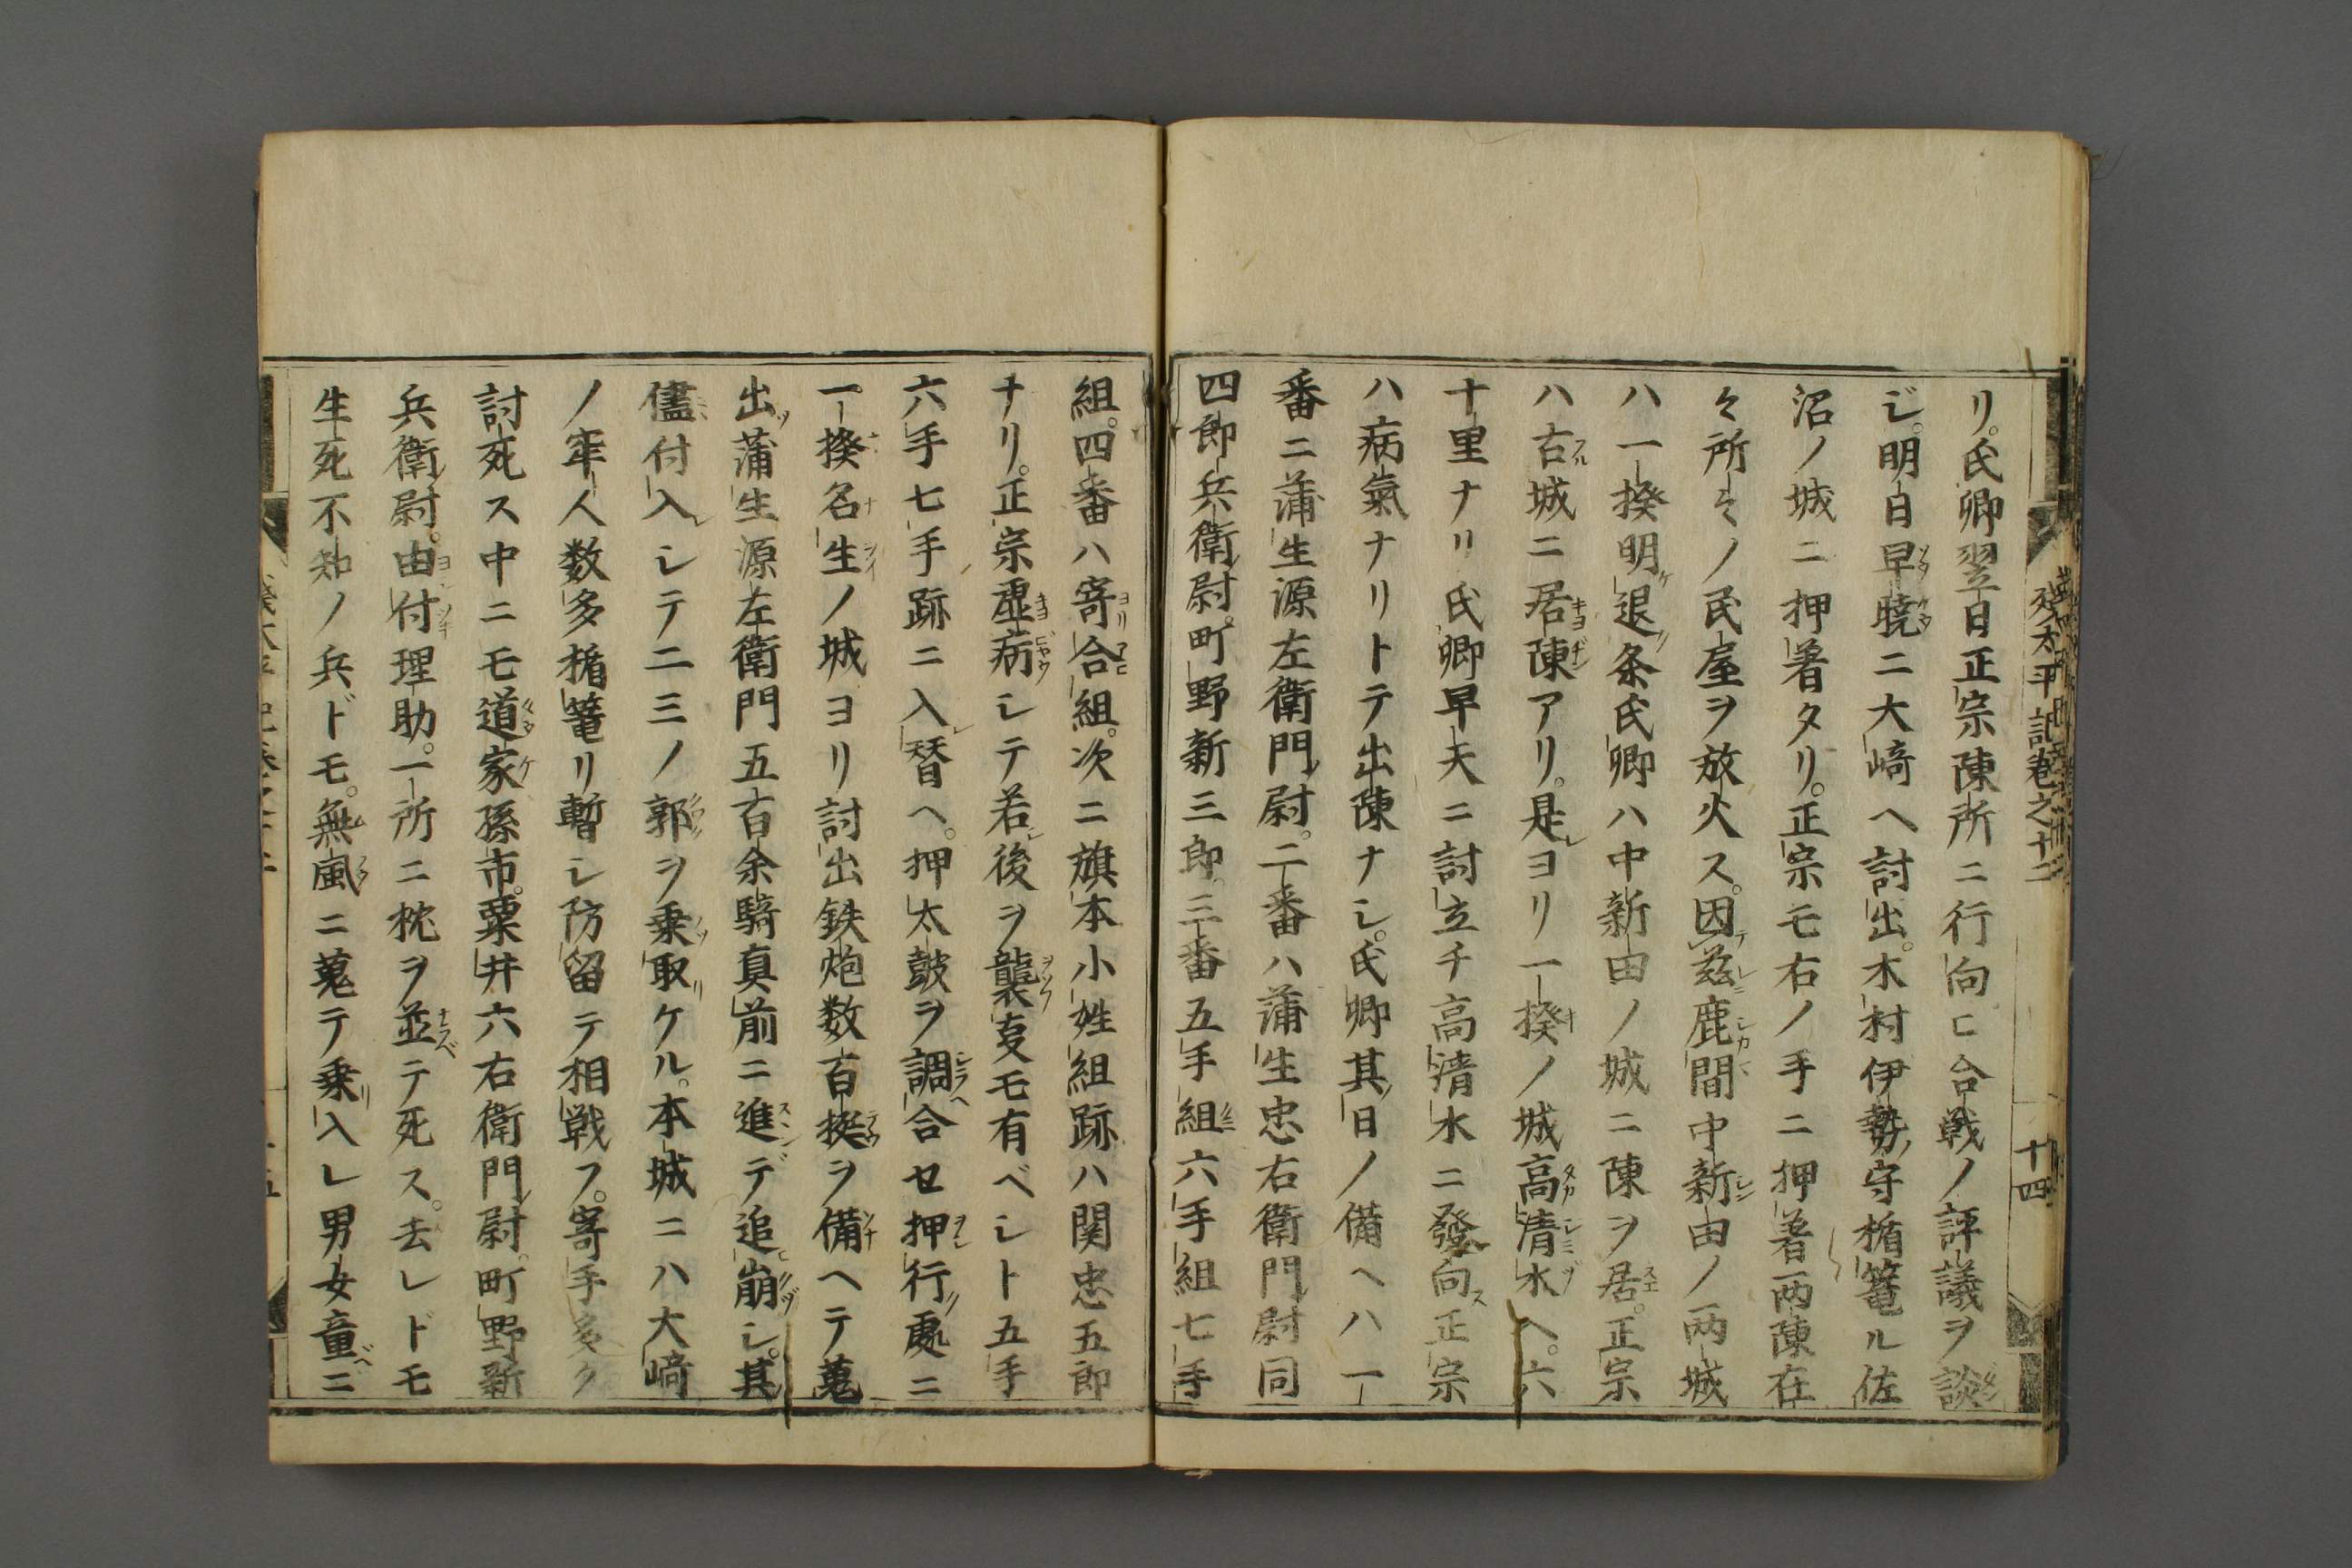 残太平記巻之十二
十四
リ。氏卿翌日正宗陳所ニ行向ヒ合戦ノ評議ヲ談
ジ。明日早暁ニ大崎ヘ討出。木村伊勢守楯篭ル佐
沼ノ城ニ押着タリ。正宗モ右ノ手ニ押着両陳在
々所々ノ民屋ヲ放火ス。因茲鹿間中新田ノ両城
ハ一揆明退条氏卿ハ中新田ノ城ニ陳ヲ居。正宗
ハ古城ニ居陳アリ。是ヨリ一揆ノ城高清水ヘ。六
十里ナリ氏卿早天ニ討立チ高清水ニ發向正宗
ハ病氣ナリトテ出陳ナシ。氏卿其日ノ備ヘハ一
番ニ蒲生源左衛門尉。二番ハ蒲生忠右衛門尉同
四郎兵衛尉。町野新三郎。三番五手組六手組七手
組。四番ハ寄合組。次ニ旗本小姓組跡ハ関忠五郎
ナリ。正宗虚病シテ若後ヲ襲支モ有ベシト五手
六手七手跡ニ入替ヘ。押太鼓ヲ調合セ押行處ニ
一揆名生ノ城ヨリ討出鉄炮数百挺ヲ備ヘテ蒐
出蒲生源左衛門五百余騎真前ニ進デ追崩シ。其
儘付入シテ二三ノ郭ヲ乗取ケル。本城ニハ大崎
ノ牢人数多楯篭リ暫シ防留テ相戦フ。寄手多ク
討死ス中ニモ道家孫市。粟井六右衛門尉。町野新
兵衛尉。由付理助。一所ニ枕ヲ並テ死ス。去レドモ
生死不知ノ兵ドモ。無風ニ蒐テ乗入レ男女童ニ